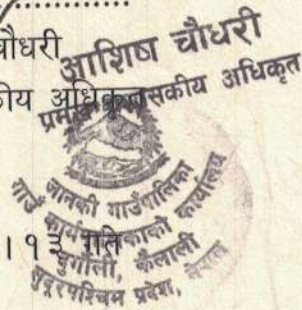 चौधरी
आशिष चौधरी
प्रमुख प्रशासकीय अधिकृत
जानकी गाउँपालिका
गाउँ कार्यपालिकाको कार्यालय
। १३ गते
दुर्गौली, कैलाली
सुदूरपश्चिम प्रदेश, नेपाल